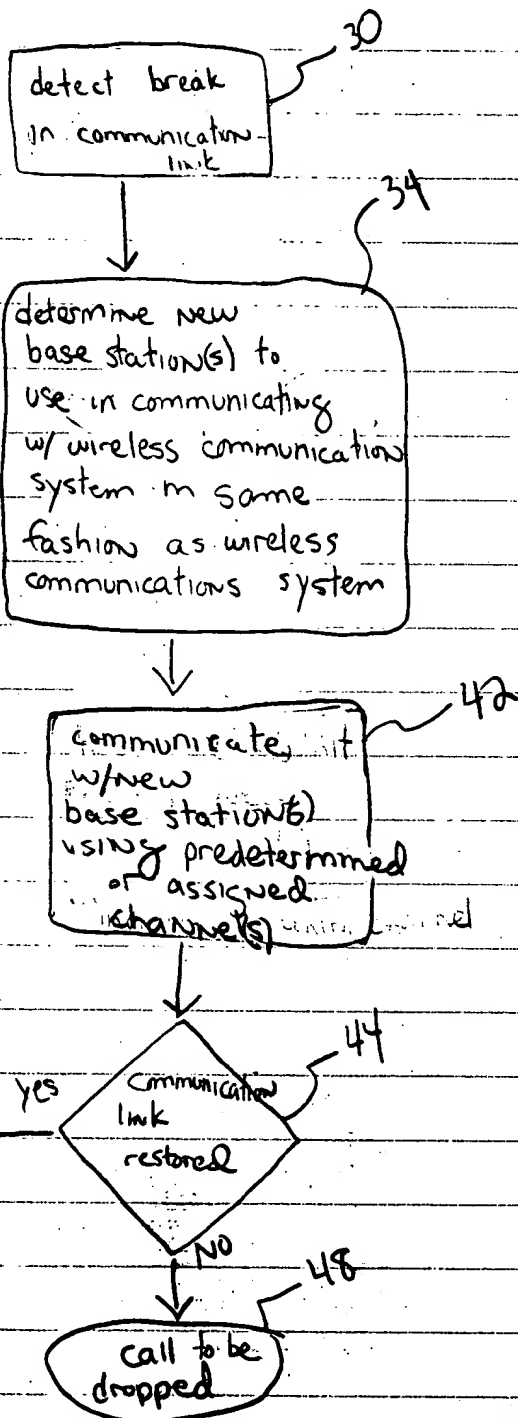 30
detect break
in communication
link
34
determine new
base station(s) to
use in communicating
w/ wireless communication
system in same
fashion as wireless
communications system
42
communicate
w/new
base station(s)
using predetermined
or assigned
channel(s)
44
yes
communication
link
restored
NO
48
call to be
dropped